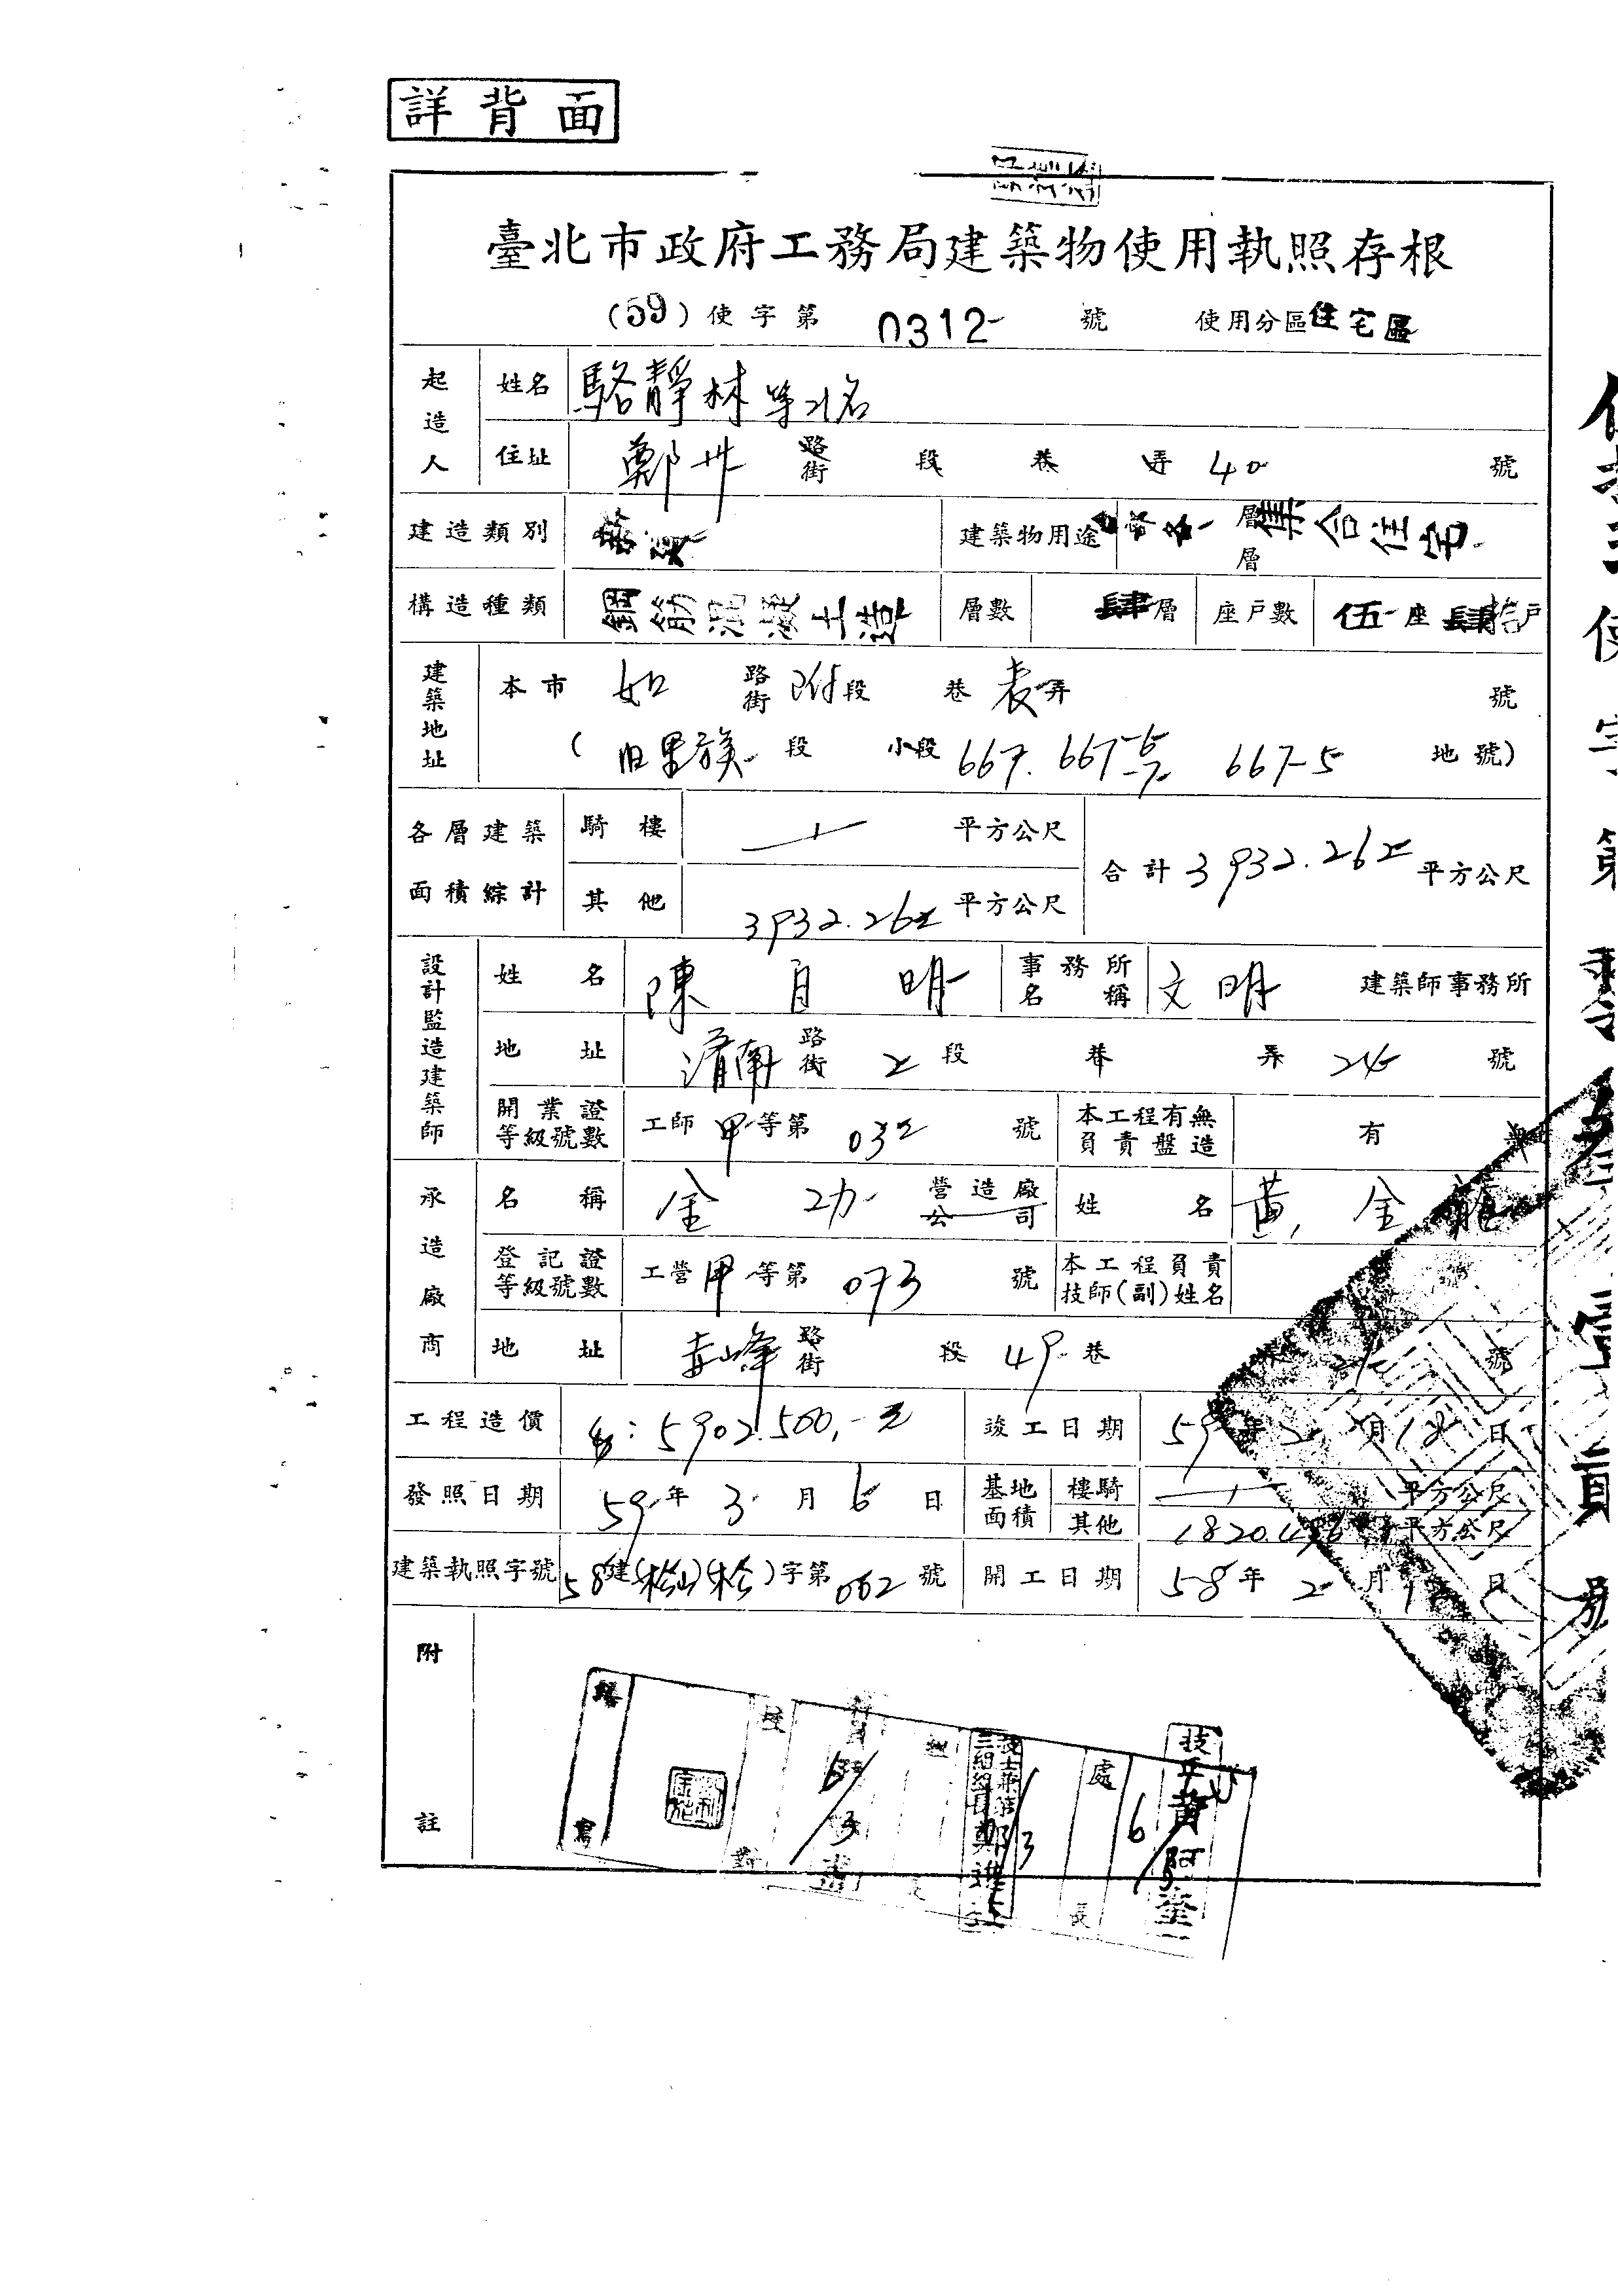 詳背面
臺北市政府工務局建築物使用執照存根
(59)使字第 0312 號 使用分區 住宅區
起造人 姓名 駱靜林等21名
住址 鄭州 路街 段 巷 弄 40 號
建造類別 新建 建築物用途 層 集合住宅 層
構造種類 鋼筋混凝土造 層數 肆層 座戶數 伍座肆拾戶
建築地址 本市 如 路街 附段 巷 表弄 號
( 旧里族 段 小段 667. 667 667-5 地號)
各層建築面積綜計 騎樓 平方公尺 合計 3932.262 平方公尺
其他 3932.262 平方公尺
設計監造建築師 姓名 陳自明 事務所名稱 文明 建築師事務所
地址 濟南 路街 2 段 巷 弄 號
開業證等級號數 工師 甲 等第 032 號 本工程有無負責盤造 有 無
承造廠商 名稱 金功 營造廠公司 姓名 黃金龍
登記證等級號數 工營 甲 等第 073 號 本工程負責技師(副)姓名
地址 赤峰 路街 段 49 巷 號
工程造價 5902.500,-元 竣工日期 59年2月18日
發照日期 59年3月6日 基地面積 樓騎 平方公尺
其他 平方公尺
建築執照字號 58建(松山)(松)字第062號 開工日期 58年2月 日
附註
繕寫 校對 處長
技正 黃阿
6/3
使字第 號